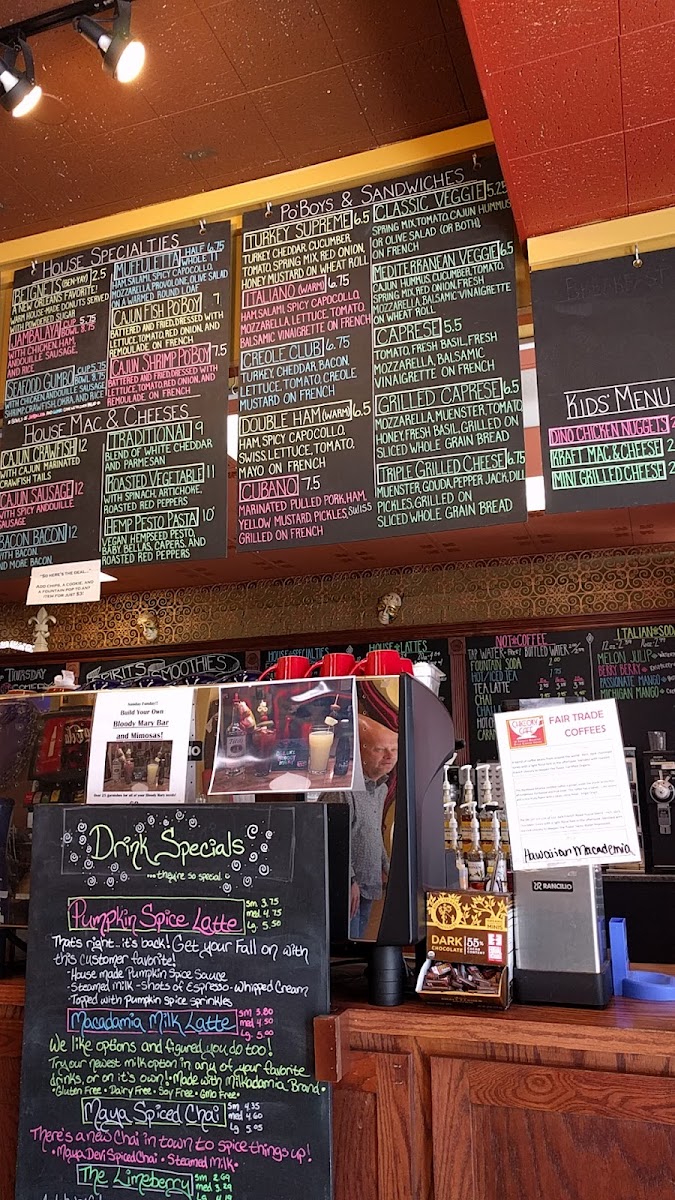 House Specialties
BEIGNETS (BEN-YAY!) 2.5
A NEW ORLEANS FAVORITE!
WARM HOUSE-MADE DONUTS SERVED
WITH POWDERED SUGAR
JAMBALAYA CUP 5.75
BOWL 8.75
WITH CHICKEN, HAM,
ANDOUILLE SAUSAGE,
AND RICE
SEAFOOD GUMBO CUP 5.75
BOWL 8.75
WITH CHICKEN, ANDOUILLE SAUSAGE
SHRIMP, CRAWFISH, OKRA, AND RICE
MUFFULETTA HALF 6.75
WHOLE 11
HAM, SALAMI, SPICY CAPOCOLLO,
MOZZARELLA, PROVOLONE, OLIVE SALAD
ON A WARMED ROUND LOAF
CAJUN FISH PO'BOY 7
BATTERED AND FRIED, DRESSED WITH
LETTUCE, TOMATO, RED ONION, AND
REMOULADE ON FRENCH
CAJUN SHRIMP PO'BOY 7.5
BATTERED AND FRIED, DRESSED WITH
LETTUCE, TOMATO, RED ONION, AND
REMOULADE ON FRENCH
House Mac & Cheeses
CAJUN CRAWFISH 12
WITH CAJUN MARINATED
CRAWFISH TAILS
CAJUN SAUSAGE 12
WITH SPICY ANDOUILLE
SAUSAGE
BACON BACON 12
WITH BACON.
AND MORE BACON
TRADITIONAL 9
BLEND OF WHITE CHEDDAR
AND PARMESAN
ROASTED VEGETABLE 11
WITH SPINACH, ARTICHOKE,
ROASTED RED PEPPERS
HEMP PESTO PASTA 10
VEGAN HEMPSEED PESTO,
BABY BELLAS, CAPERS, AND
ROASTED RED PEPPERS
Po'Boys & Sandwiches
TURKEY SUPREME 6.5
TURKEY, CHEDDAR, CUCUMBER,
TOMATO, SPRING MIX, RED ONION,
HONEY MUSTARD ON WHEAT ROLL
ITALIANO (WARM) 6.75
HAM, SALAMI, SPICY CAPOCOLLO,
MOZZARELLA, LETTUCE, TOMATO,
BALSAMIC VINAIGRETTE ON FRENCH
CREOLE CLUB 6.75
TURKEY, CHEDDAR, BACON,
LETTUCE, TOMATO, CREOLE
MUSTARD ON FRENCH
DOUBLE HAM (WARM) 6.5
HAM, SPICY CAPOCOLLO,
SWISS, LETTUCE, TOMATO,
MAYO ON FRENCH
CUBANO 7.5
MARINATED PULLED PORK, HAM,
YELLOW MUSTARD, PICKLES, SWISS
GRILLED ON FRENCH
CLASSIC VEGGIE 5.25
SPRING MIX, TOMATO, CAJUN HUMMUS
OR OLIVE SALAD (OR BOTH),
ON FRENCH
MEDITERRANEAN VEGGIE 6.5
CAJUN HUMMUS, CUCUMBER, TOMATO,
SPRING MIX, RED ONION, FRESH
MOZZARELLA, BALSAMIC VINAIGRETTE
ON WHEAT ROLL
CAPRESE 5.5
TOMATO, FRESH BASIL, FRESH
MOZZARELLA, BALSAMIC
VINAIGRETTE ON FRENCH
GRILLED CAPRESE 6.5
MOZZARELLA, MUENSTER, TOMATO,
HONEY, FRESH BASIL, GRILLED ON
SLICED WHOLE GRAIN BREAD
TRIPLE GRILLED CHEESE 6.75
MUENSTER, GOUDA, PEPPER JACK, DILL
PICKLES, GRILLED ON
SLICED WHOLE GRAIN BREAD
Kids' Menu
DINO CHICKEN NUGGETS
KRAFT MAC & CHEESE
MINI GRILLED CHEESE
"SO HERE'S THE DEAL..."
ADD CHIPS, A COOKIE, AND
A FOUNTAIN POP TO ANY
ITEM FOR JUST $3!
THURSDAY
SPIRITS SMOOTHIES
HOUSE SPECIALTIES
HOUSE LATTES
NOT COFFEE
TAP WATER
BOTTLED WATER
FOUNTAIN SODA
HOT/ICED TEA
TEA LATTE
CHAI
ITALIAN SODA
MELON
BERRY BERRY
PASSIONATE MANGO
MICHIGAN MANGO
Sunday Funday!!
Build Your Own
Bloody Mary Bar
and Mimosas!
FAIR TRADE
COFFEES
Hawaiian Macadamia
RANCILIO
DARK
CHOCOLATE
55%
MINIS
Drink Specials
...they're so special
Pumpkin Spice Latte sm 3.75
med 4.75
Lg 5.50
That's right...it's back! Get your Fall on with
this customer favorite!
·House made Pumpkin Spice Sauce
·Steamed milk ·Shots of Espresso ·Whipped Cream
·Topped with pumpkin spice sprinkles
Macadamia Milk Latte sm 3.80
med 4.50
Lg 5.00
We like options and figured you do too!
Try our newest milk option in any of your favorite
drinks, or on it's own! ·Made with Milkadamia Brand·
·Gluten Free · Dairy Free · Soy Free · GMO Free·
Maya Spiced Chai sm 4.35
med 4.60
Lg 5.05
There's a new Chai in town to spice things up!
·Maya Devi Spiced Chai ·Steamed Milk·
The Limeberry sm 2.69
med 3.29
Lg 4.19